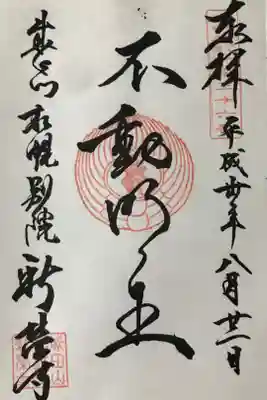 奉拝 平成廿年八月廿一日
不動明王
成田山札幌別院新栄寺